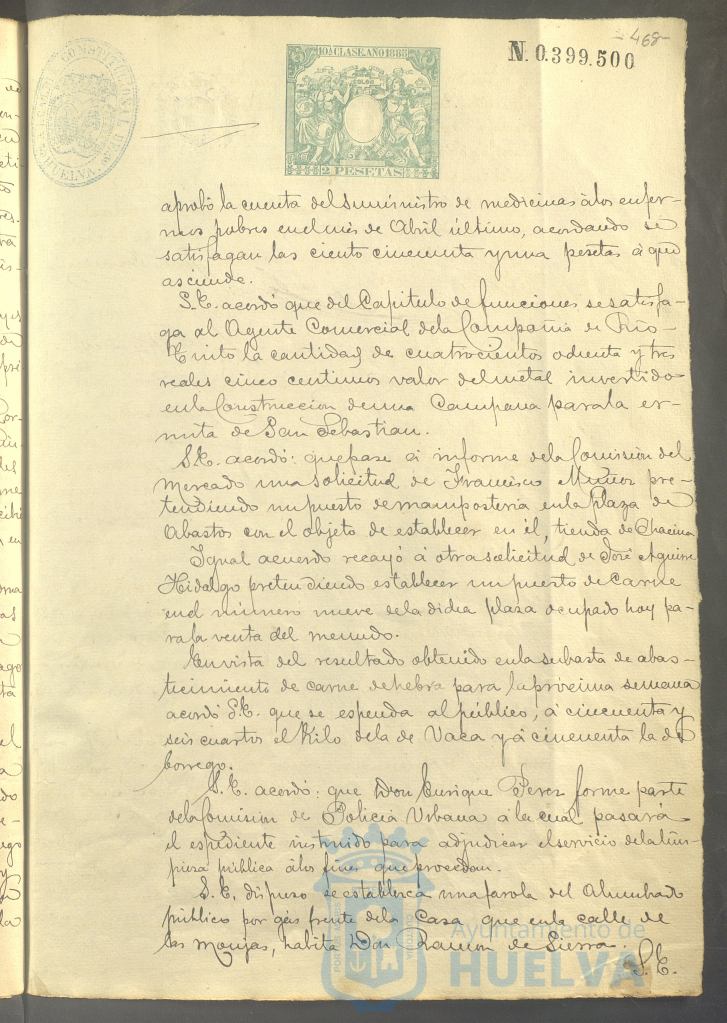 -468-
N. 0.399.500
10ª CLASE. AÑO 1883
2 PESETAS
CONSTITUCIONAL
HUELVA
aprobó la cuenta del suministro de medicinas á los enfer-
mos pobres en el mes de Abril último, acordando se
satisfagan las ciento cincuenta y una pesetas á que
asciende.
S.E. acordó que del Capitulo de funciones se satisfa-
ga al Agente Comercial de la Compañia de Rio-
Tinto la cantidad de cuatrocientos ochenta y tres
reales cinco centimos valor del metal invertido
en la Construccion de una Campana para la er-
mita de San Sebastian.
S.E. acordó: que pase á informe de la Comision del
Mercado una solicitud de Francisco Muñoz pre-
tendiendo un puesto de mamposteria en la Plaza de
Abastos con el objeto de establecer en él, tienda de Chacina
Igual acuerdo recayó á otra solicitud de José Aguirre
Hidalgo pretendiendo establecer un puesto de Carne
en el número nueve de la dicha plaza ocupado hoy pa-
ra la venta del menudo.
En vista del resultado obtenido en la subasta de abas-
tecimiento de carne de hebra para la procima semana
acordó S.E. que se espenda al público, á cincuenta y
seis cuartos el Kilo de la de Vaca y á cincuenta la de
borrego.
S.E. acordó: que Don Enrique Perez forme parte
de la Comision de Policia Urbana á la cual pasará
el espediente instruido para adjudicar el servicio de la lim-
pieza pública á los fines que procedan.
S.E. dispuso se establezca una farola del Alumbrado
público por gas frente de la Casa que en la calle de
las Monjas, habita Don Ramon de Sierra.
S.E.
Ayuntamiento de
HUELVA